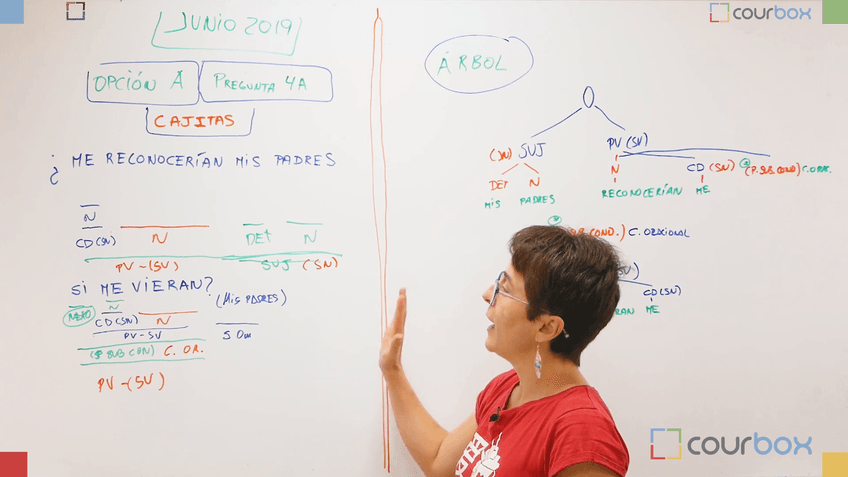 JUNIO 2019
OPCIÓN A
PREGUNTA 4A
CAJITAS
¿ ME RECONOCERÍAN MIS PADRES
N
CD(SN) N DET N
PV-(SV) SUJ (SN)
SI ME VIERAN?
(MIS PADRES)
NEXO N
CD(SN) N
PV-SV S Om
(P SUB CON) C. OR.
PV-(SV)
ÁRBOL
O
(SN) SUJ PV (SV)
DET N N CD (SN) (P. SUB. COND) C. ORA.
MIS PADRES RECONOCERÍAN ME
COND.) C. ORACIONAL
CD(SN)
ME
courbox
courbox